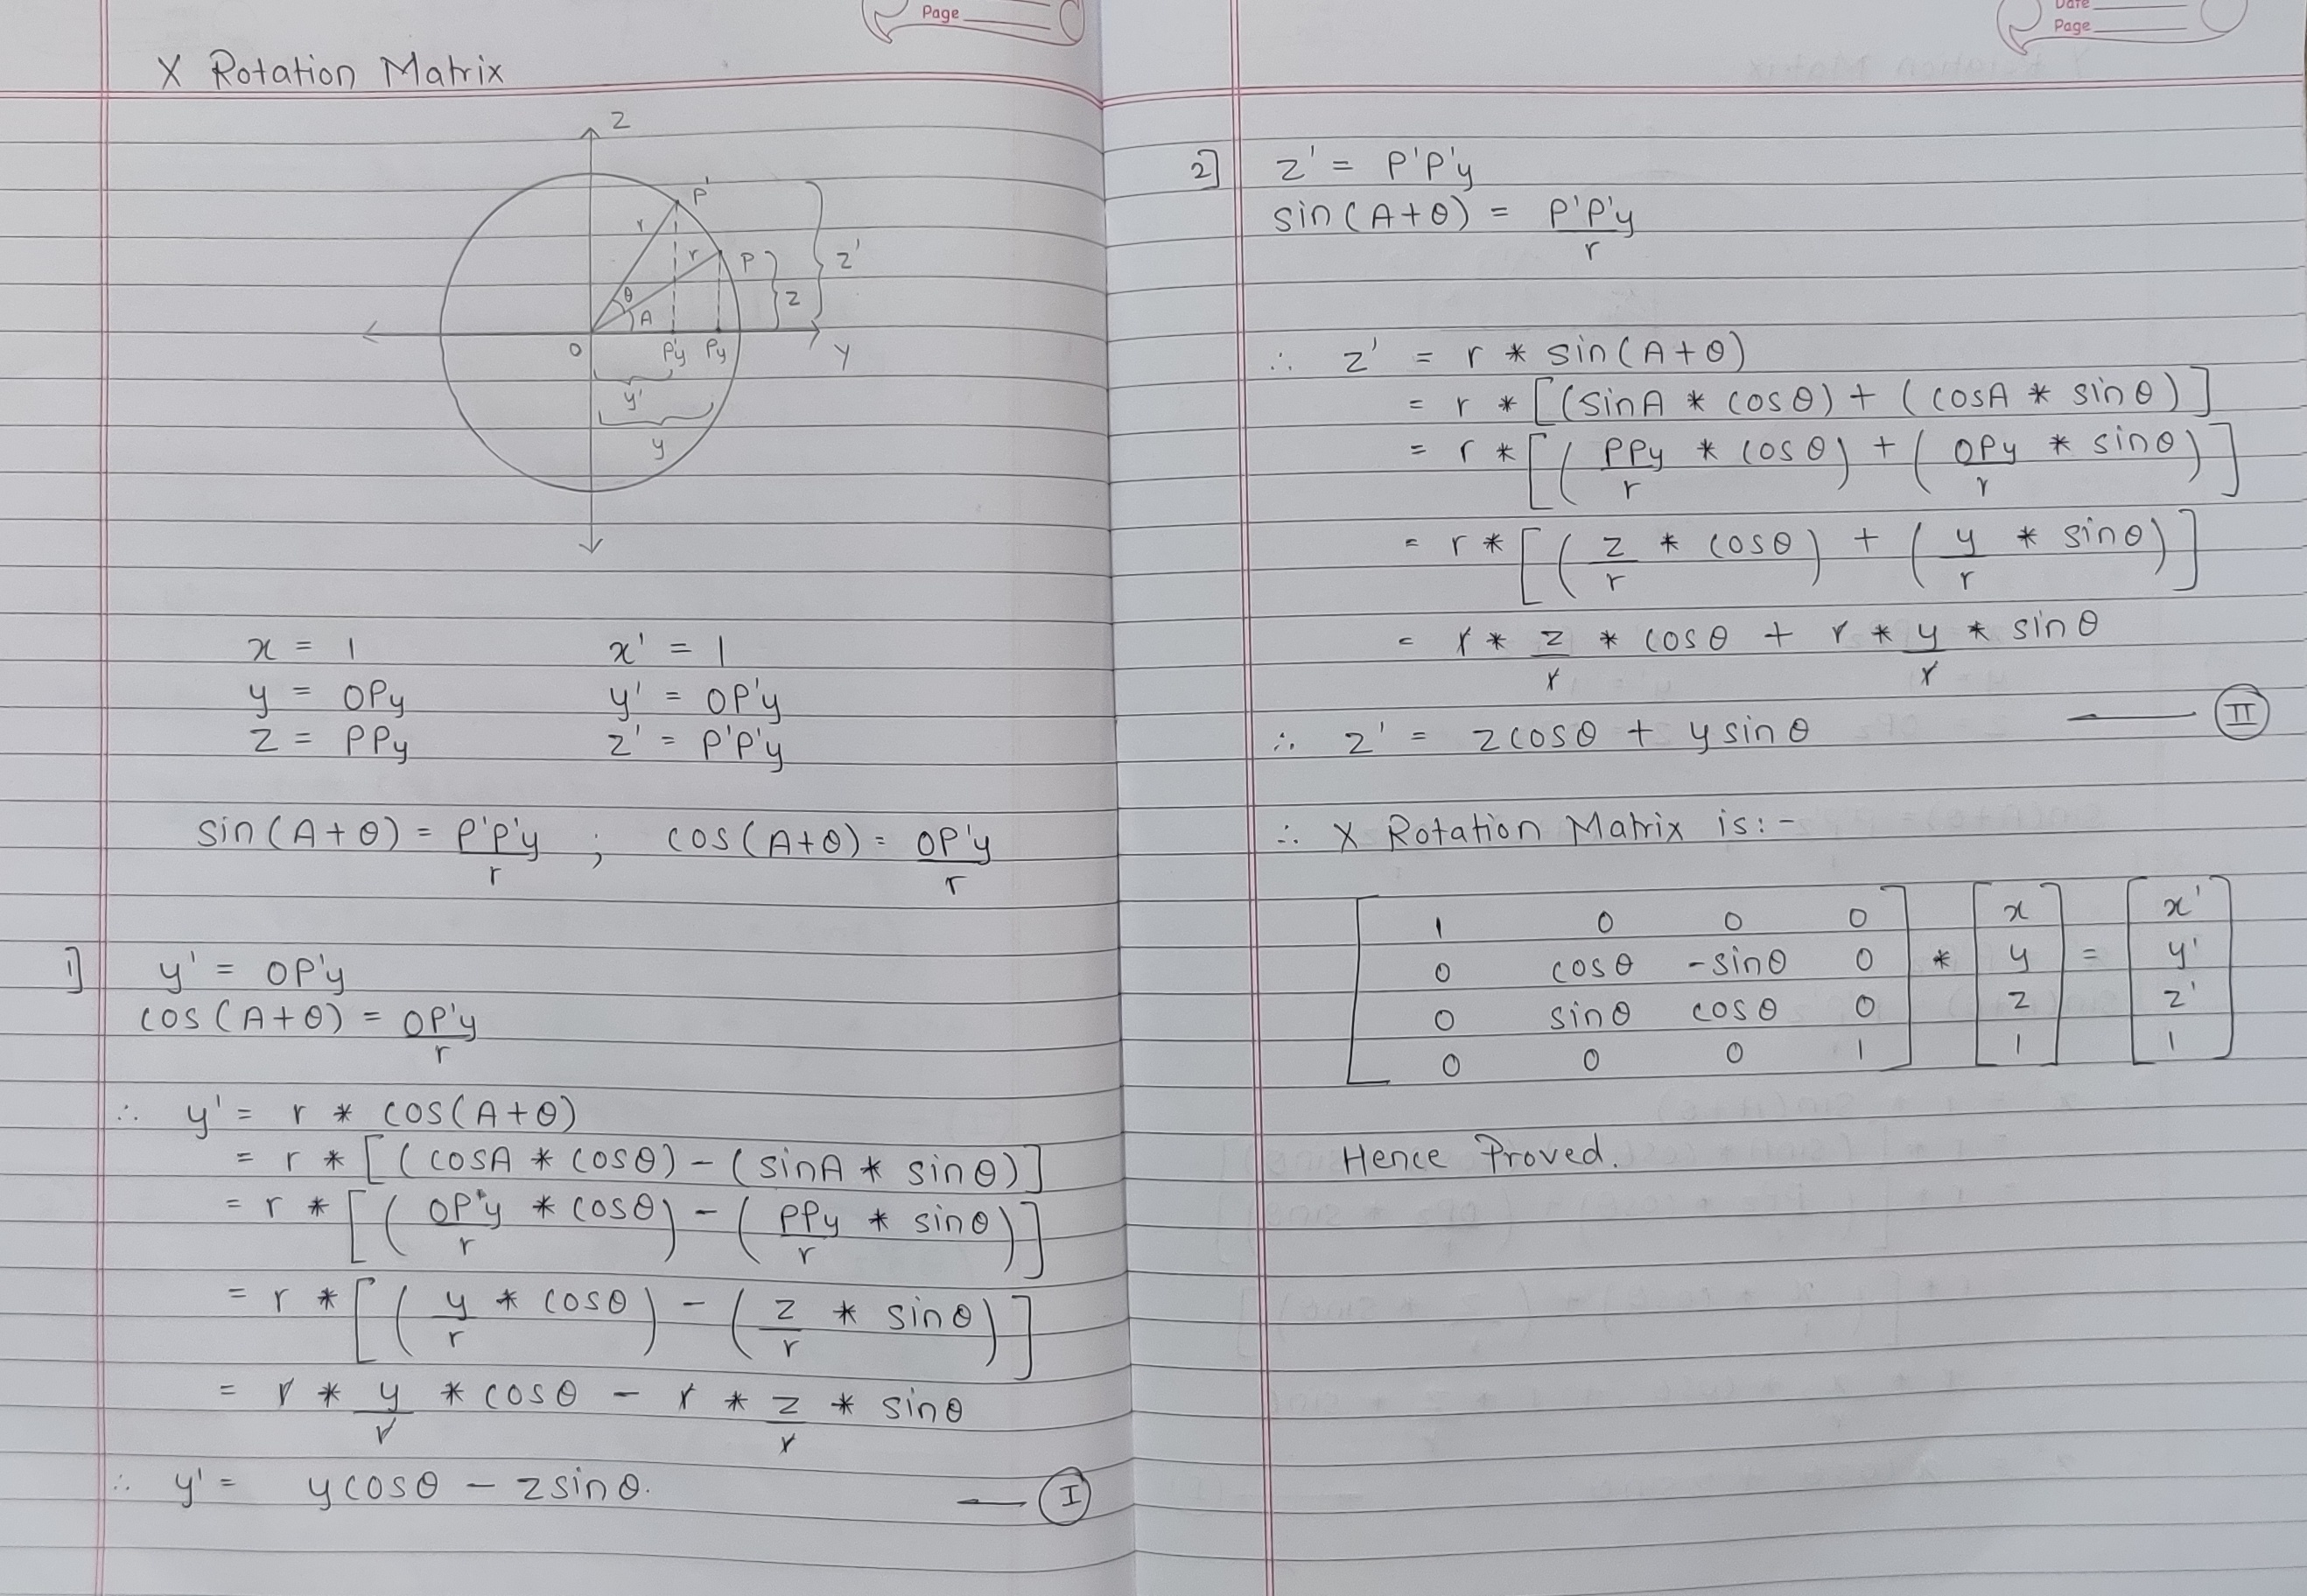 Page
X Rotation Matrix
Z
P'
r
r P
z'
θ
z
A
O P'y Py Y
y'
y
x = 1 x' = 1
y = OPy y' = OP'y
z = PPy z' = P'P'y
sin(A+θ) = P'P'y / r ; cos(A+θ) = OP'y / r
1] y' = OP'y
cos(A+θ) = OP'y / r
∴ y' = r * cos(A+θ)
= r * [(cosA * cosθ) - (sinA * sinθ)]
= r * [(OP'y / r * cosθ) - (PPy / r * sinθ)]
= r * [(y / r * cosθ) - (z / r * sinθ)]
= r * y / r * cosθ - r * z / r * sinθ
∴ y' = ycosθ - zsinθ. — I
Date
Page
2] z' = P'P'y
sin(A+θ) = P'P'y / r
∴ z' = r * sin(A+θ)
= r * [(sinA * cosθ) + (cosA * sinθ)]
= r * [(PPy / r * cosθ) + (OPy / r * sinθ)]
= r * [(z / r * cosθ) + (y / r * sinθ)]
= r * z / r * cosθ + r * y / r * sinθ
∴ z' = zcosθ + ysinθ — II
∴ X Rotation Matrix is:-
1 0 0 0 x x'
0 cosθ -sinθ 0 * y = y'
0 sinθ cosθ 0 z z'
0 0 0 1 1 1
Hence Proved.